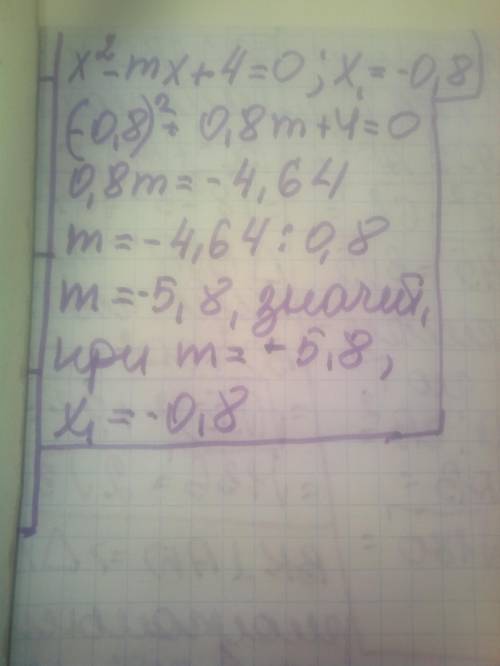 x² - mx + 4 = 0; x₁ = -0,8
(-0,8)² + 0,8m + 4 = 0
0,8m = -4,64
m = -4,64 : 0,8
m = -5,8, значит,
при m = -5,8,
x₁ = -0,8